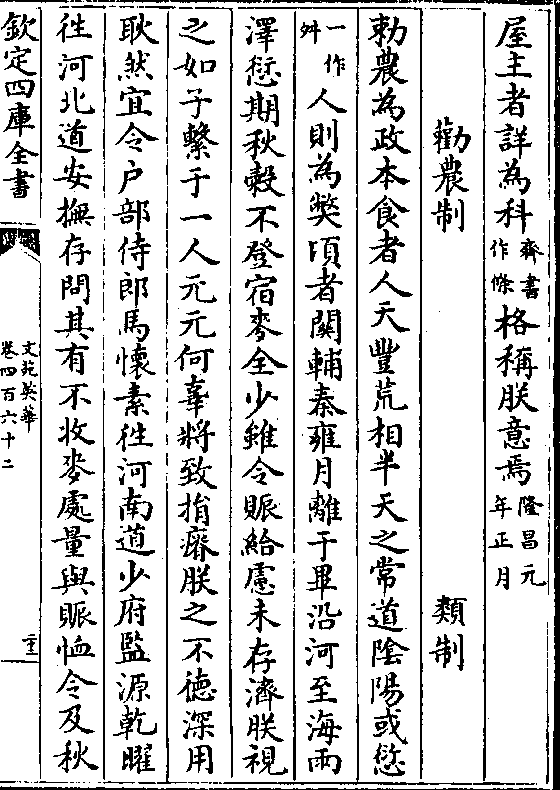 屋主者詳為科齊書作條格稱朕意焉隆昌元年正月
勸農制 類制
勅農為政本食者人天豐荒相半天之常道陰陽或愆
一作舛人則為獘頃者關輔秦雍月離于畢沿河至海雨
澤愆期秋穀不登宿麥全少雖令賑給慮未存濟朕視
之如子繫于一人元元何辜將致捐瘠朕之不德深用
耿然宜令户部侍郎馬懷素徃河南道少府監源乾曜
徃河北道安撫存問其有不收麥處量與賑恤令及秋
欽定四庫全書
文苑英華
卷四百六十二
二十三